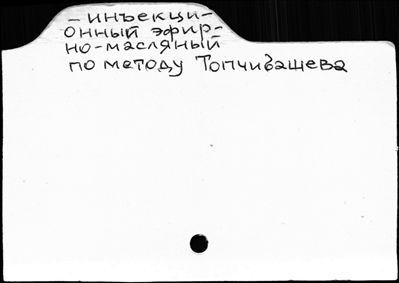 – инъекци-
онный эфир-
но-масляный
по методу Топчибашева